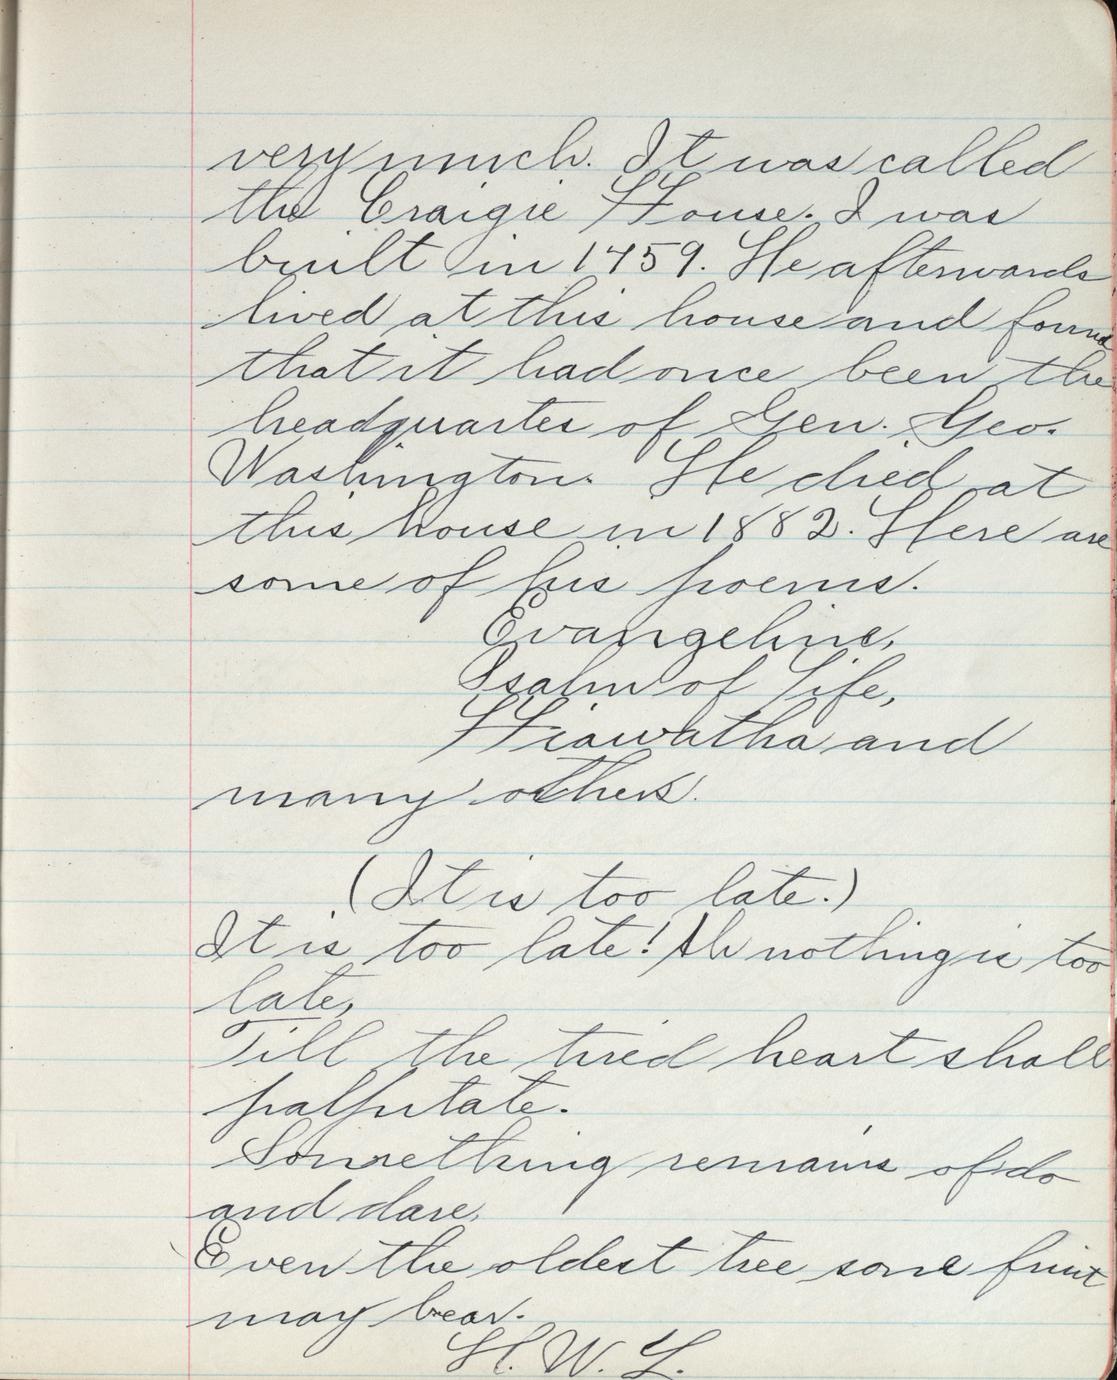 very much. It was called
the Craigie House. I was
built in 1759. He afterwards
lived at this house and found
that it had once been the
headquarters of Gen. Geo.
Washington. He died at
this house in 1882. Here are
some of his poems.
Evangeline,
Psalm of Life,
Hiawatha and
many others.
(It is too late.)
It is too late! Ah nothing is too
late,
Till the tired heart shall
palpitate.
Something remains of do
and dare,
Even the oldest tree some fruit
may bear.
H. W. L.